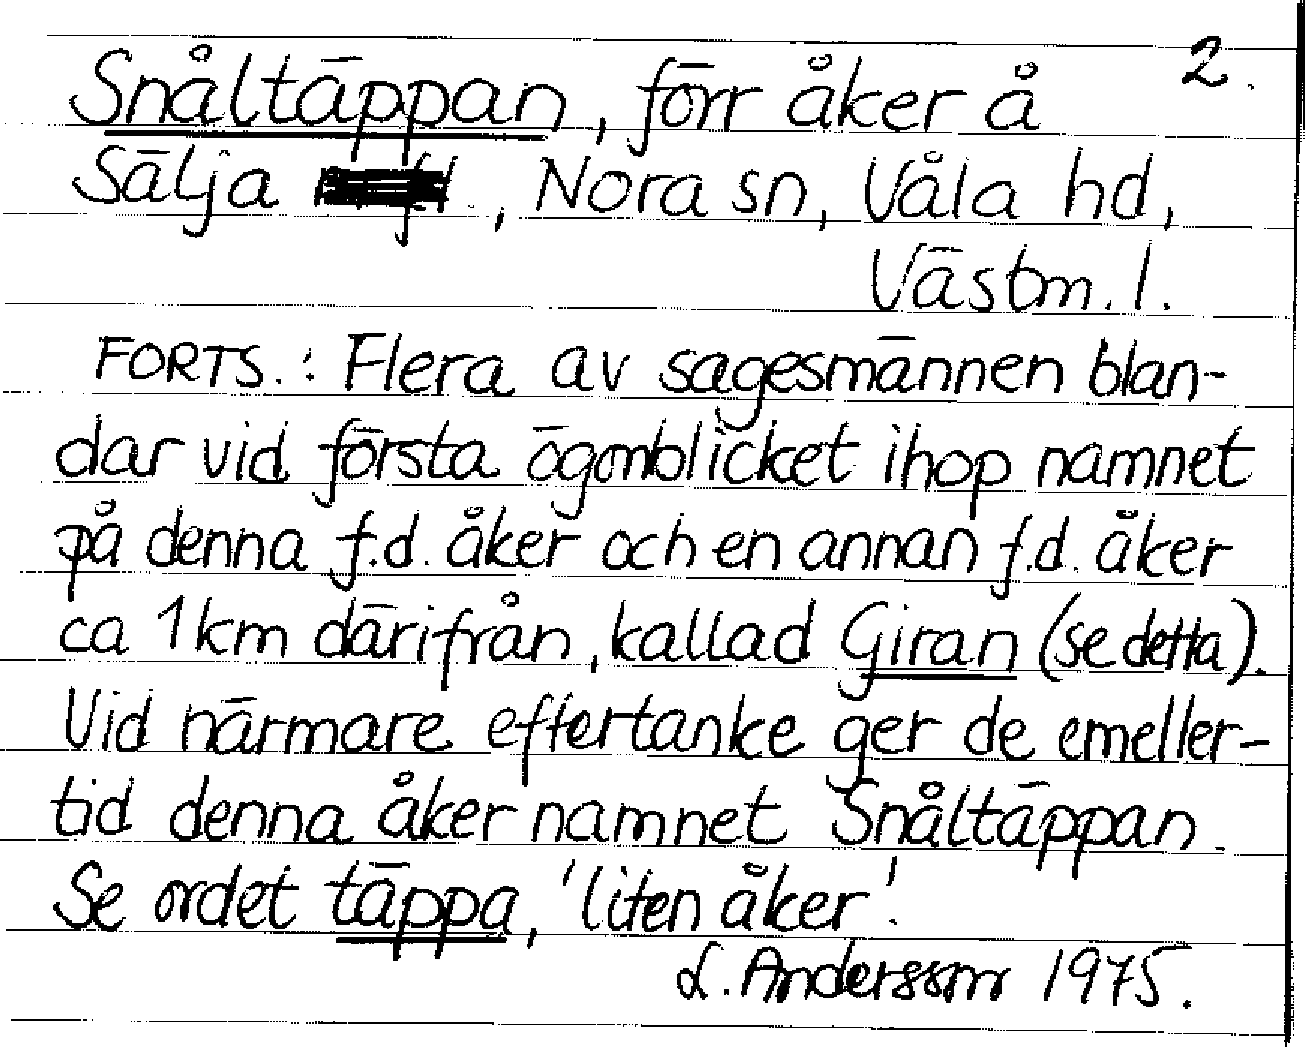 2.
Snåltäppan, förr åker å
Sälja , Nora sn, Våla hd,
Västm. l.
FORTS.: Flera av sagesmännen blan-
dar vid första ögonblicket ihop namnet
på denna f.d. åker och en annan f.d. åker
ca 1 km därifrån, kallad Giran (se detta).
Vid närmare eftertanke ger de emeller-
tid denna åker namnet Snåltäppan.
Se ordet täppa, 'liten åker'.
L. Andersson 1975.